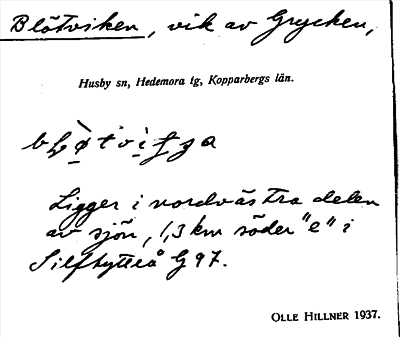 Blötviken, vik av Grycken,
Husby sn, Hedemora tg, Kopparbergs län.
Ligger i nordvästra delen
av sjön, 1,3 km söder "e" i
Silfhytteå G 97.
OLLE HILLNER 1937.